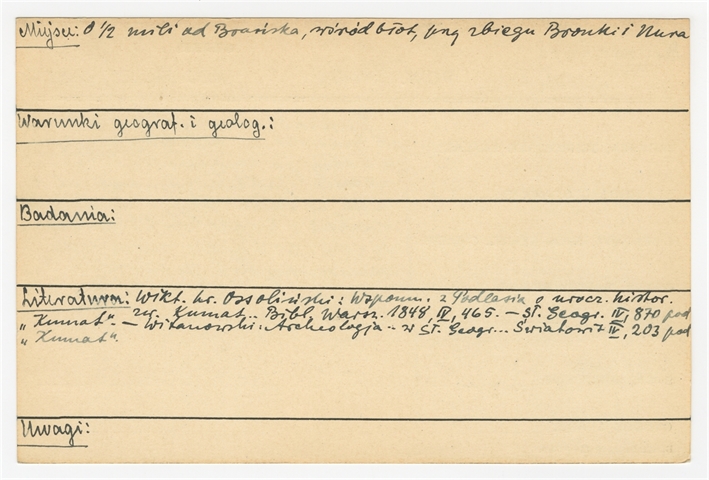 Miejsce: O 1/2 mili od Brańska, wśród błot, przy zbiegu Bronki i Nura
Warunki geograf. i geolog.:
Badania:
Literatura: Wikt. hr. Ossoliński: Wspomn. z Podlasia o urocz. histor.
zw. Kumat.. Bibl. Warsz. 1848, IV, 465. — Sł. Geogr. IV, 870 pod
„Kumat”. — Witanowski: Archeologja.. w Sł. Geogr... Światowit IV, 203 pod
„Kumat”.
Uwagi: